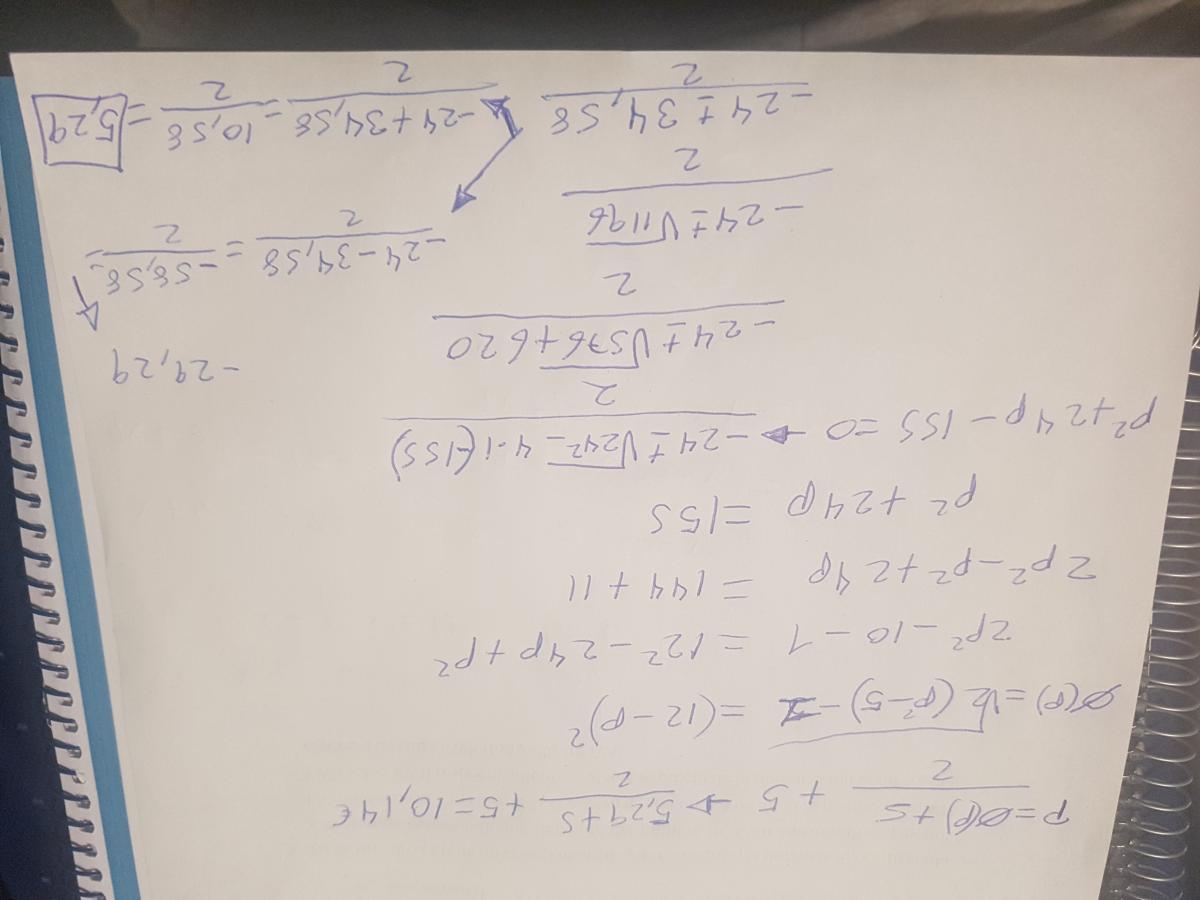 P = (Ø(p) + 5)/2 + 5 → (5,29 + 5)/2 + 5 = 10,14 €
Ø(p) = √(2(p² - 5) - 1) = (12 - p)²
2p² - 10 - 1 = 12² - 24p + p²
2p² - p² + 24p = 144 + 11
p² + 24p = 155
p² + 24p - 155 = 0 → (-24 ± √(24² - 4·1(-155)))/2
(-24 ± √(576 + 620))/2
(-24 ± √1196)/2
(-24 ± 34,58)/2
(-24 - 34,58)/2 = (-58,58)/2 = → -29,29
(-24 + 34,58)/2 = 10,58/2 = 5,29